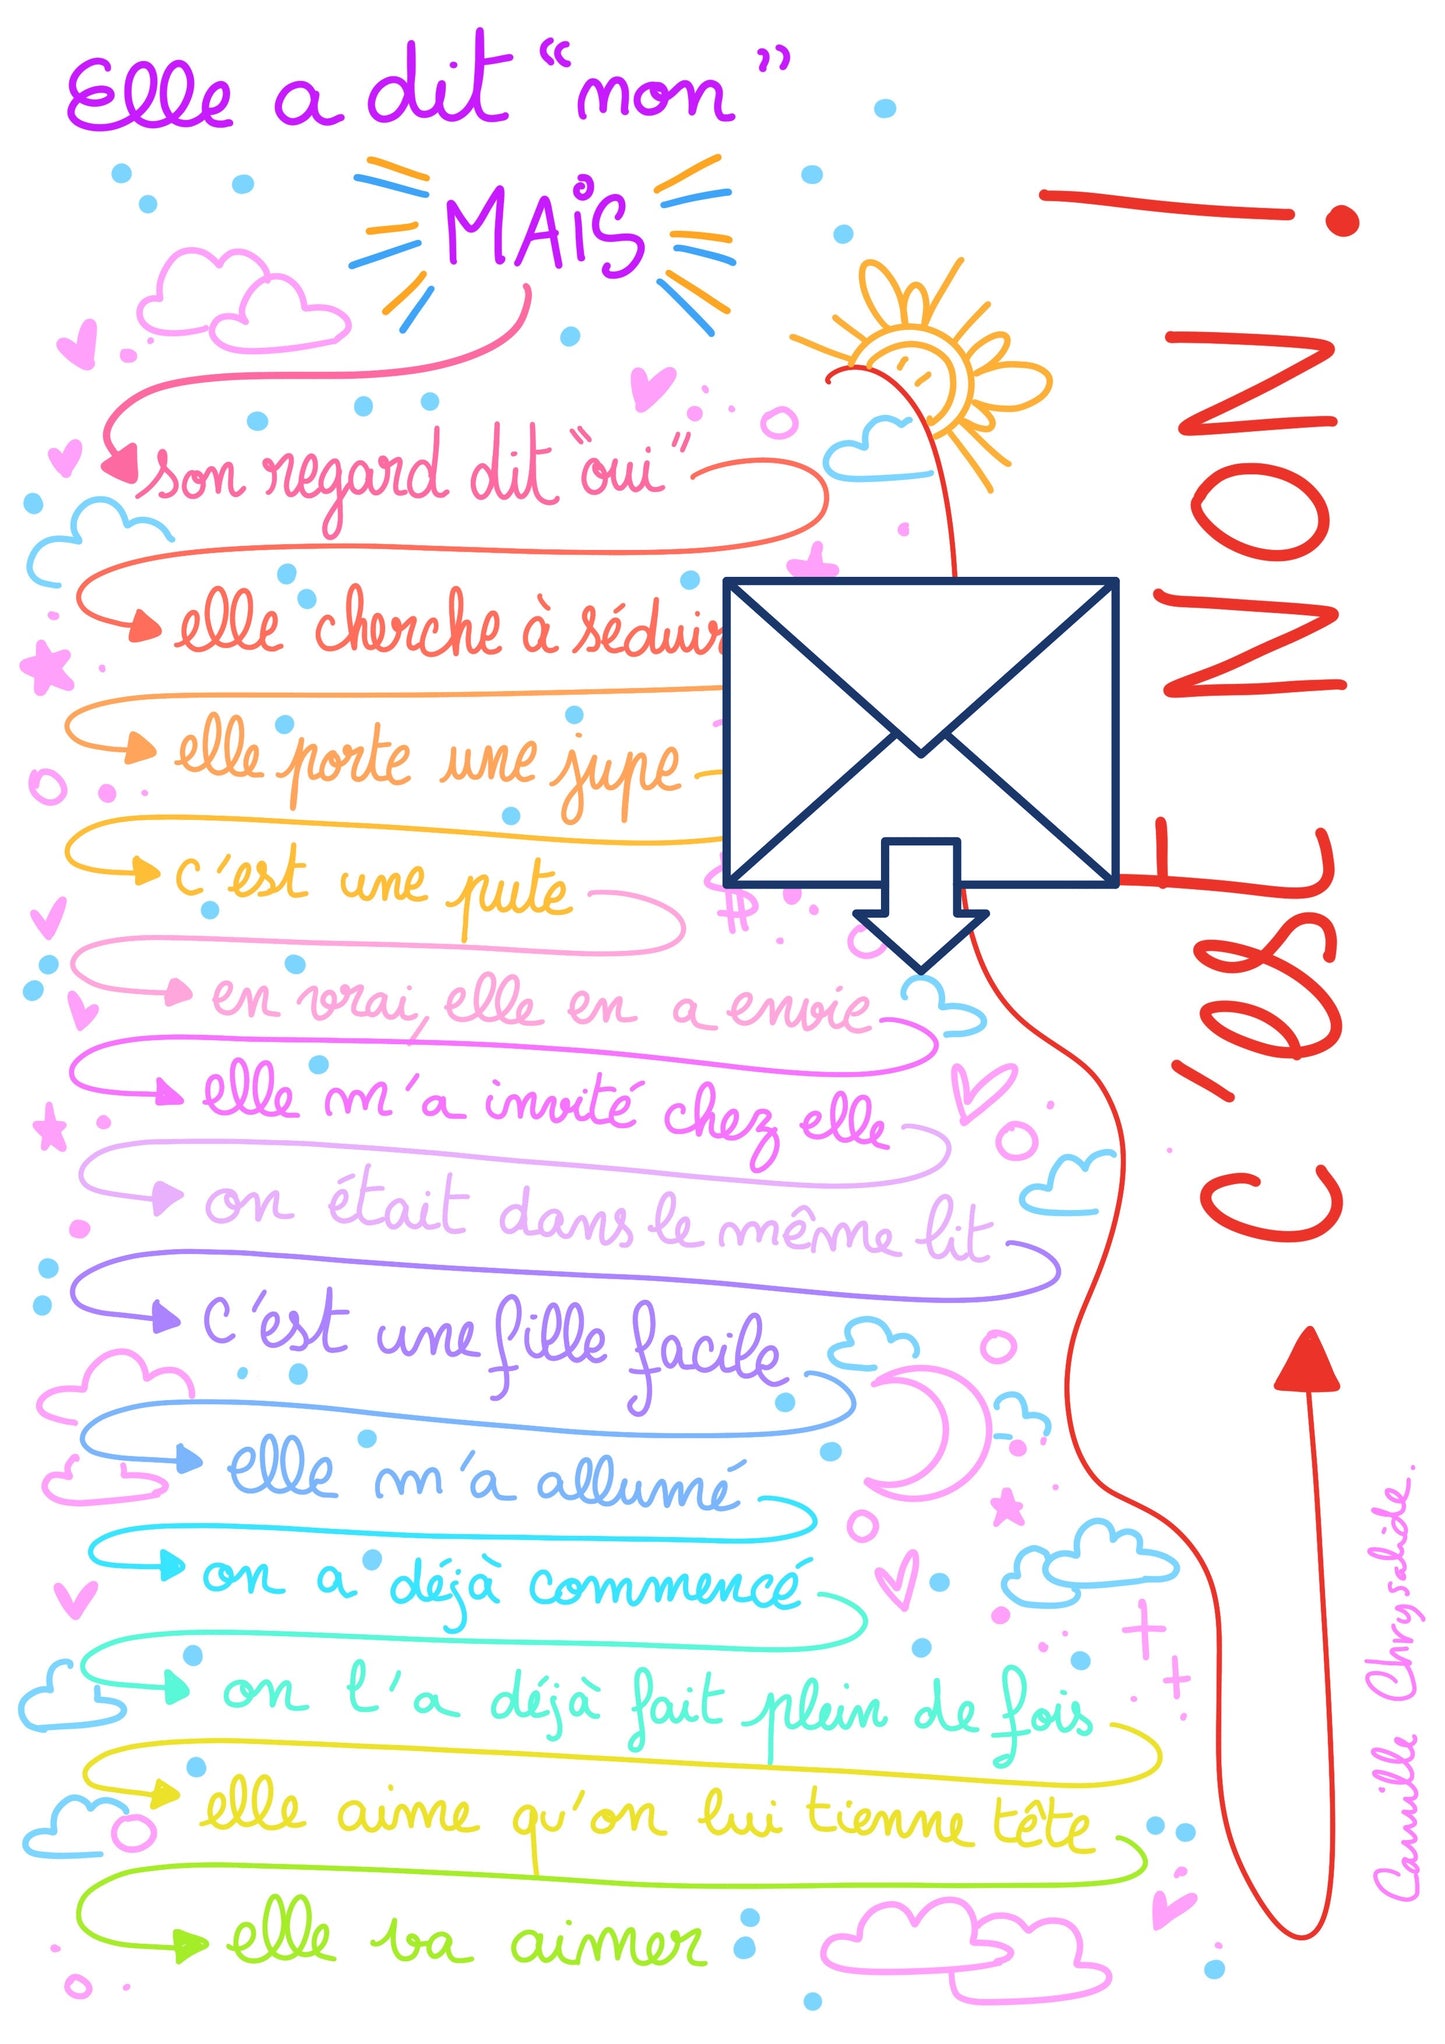 Elle a dit “non”
MAiS
son regard dit “oui”
elle cherche à
elle porte une jupe
c'est une pute
en vrai, elle en a envie
elle m'a invité chez elle
on était dans le même lit
c'est une fille facile
elle m'a allumé
on a déjà commencé
on l'a déjà fait plein de fois
elle aime qu'on lui tienne tête
elle va aimer
C'est NON !
Camille Chrysalide.